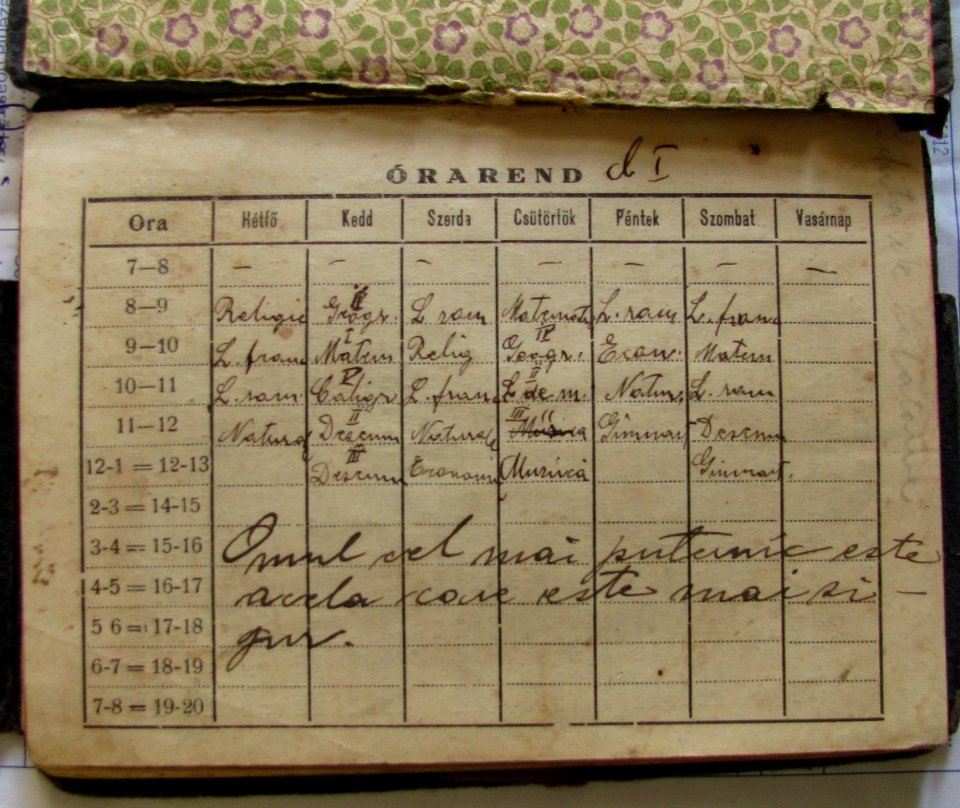 ÓRAREND cl I
Ora Hétfő Kedd Szerda Csütörtök Péntek Szombat Vasárnap
7—8 — — — — — — —
8—9 Religie Geogr. L. rom Matemat L. rom L. franc
III
9—10 L. franc Matem Relig Geogr. Econ. Matem
I IV
10—11 L. rom. Caligr L. franc L. de m. Natur. L. rom
V II
11—12 Natura Desemn Natura Gimnas Desemn
II III
12-1 = 12-13 Desemn Economi Muzică Gimnast.
III
2-3 = 14-15
3-4 = 15-16
4-5 = 16-17
5 6 = 17-18
6-7 = 18-19
7-8 = 19-20
Omul cel mai puternic este
acela care este mai si-
gur.